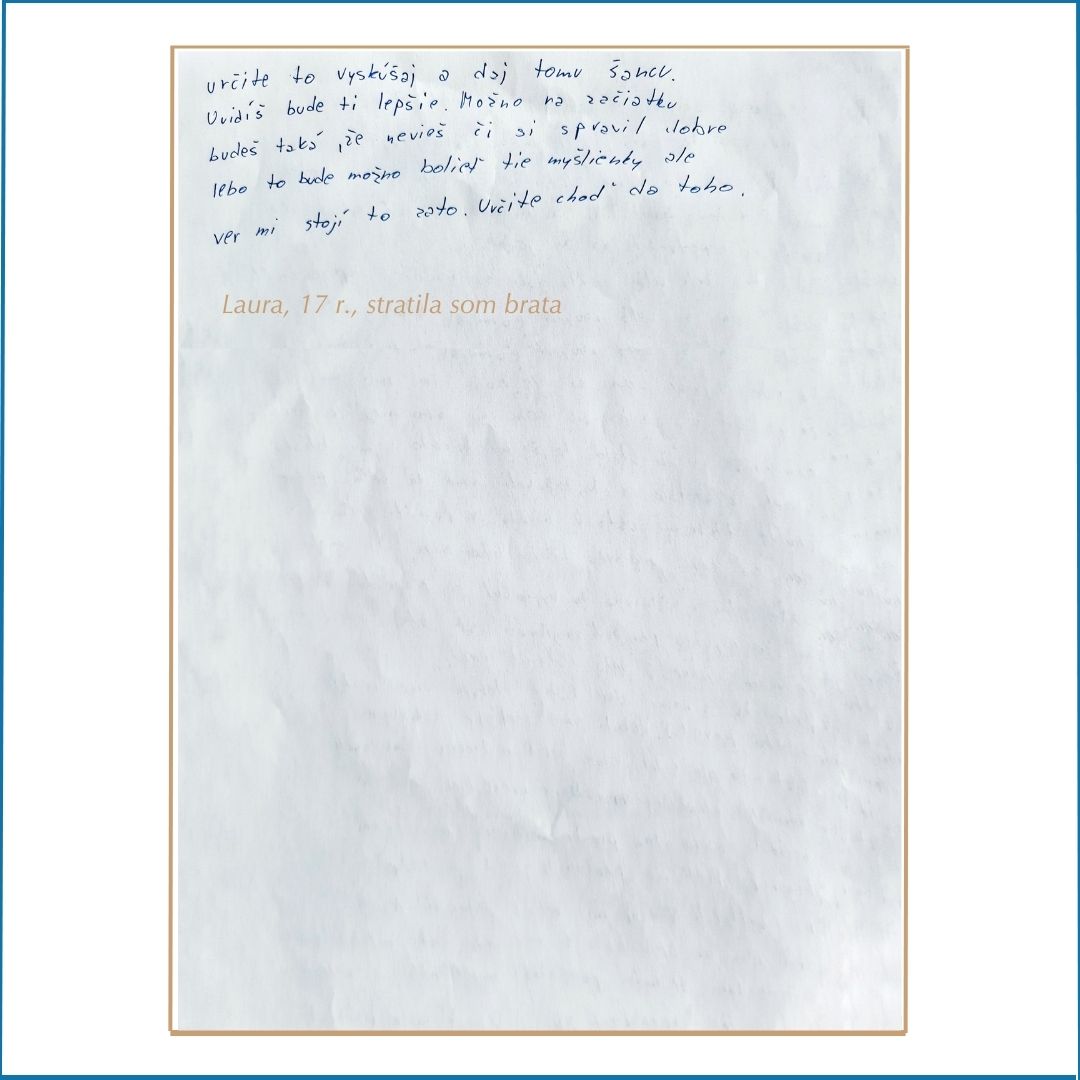 určite to vyskúšaj a daj tomu šancu.
Uvidíš bude ti lepšie. Možno na začiatku
budeš taká, že nevieš či si spravil dobre
lebo to bude možno bolieť tie myšlienky ale
ver mi stojí to zato. Určite choď do toho.
Laura, 17 r., stratila som brata